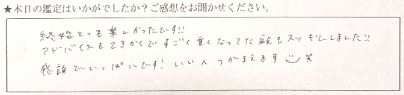 ★本日の鑑定はいかがでしたか？ご感想をお聞かせください。
終始とても楽しかったです!!
アドバイスもてきかくですごく重くなってた頭もスッキリしました!!
感謝でいっぱいです! いい人つかまえます